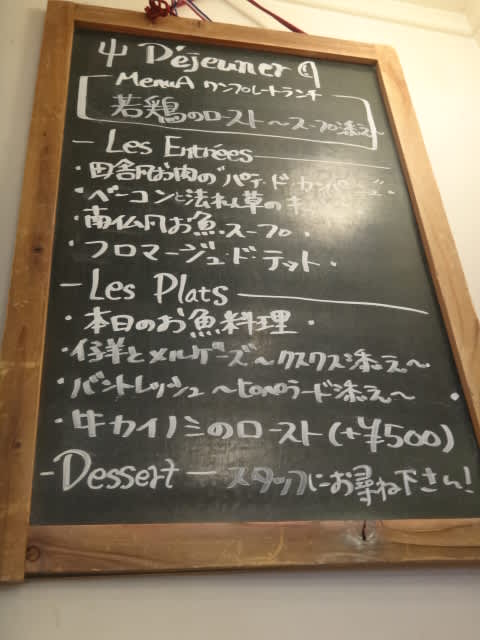 Déjeuner
MenuA ワンプレートランチ
若鶏のロースト〜スープ添え〜
- Les Entrées
・田舎風お肉のパテ・ド・カンパーニュ・
・ベーコンと法れん草のキ
・南仏風お魚スープ・
・フロマージュ・ド・テット・
- Les Plats
・本日のお魚料理・
・仔羊とメルゲーズ〜クスクス添え〜
・バントレッシュ〜ピペラード添え〜
・牛カイノミのロースト(+¥500)
- Dessert - スタッフにお尋ね下さい!